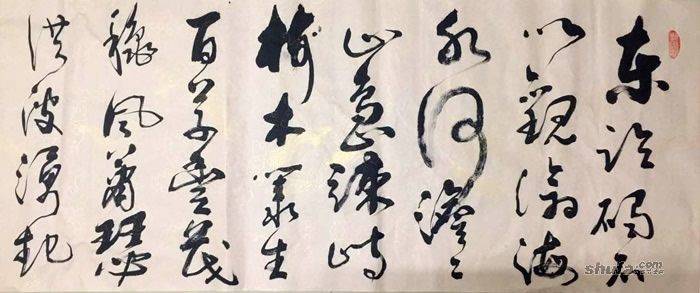 东临碣石
以观沧海
水何澹〻
山岛竦峙
树木丛生
百草丰茂
秋风萧瑟
洪波涌起